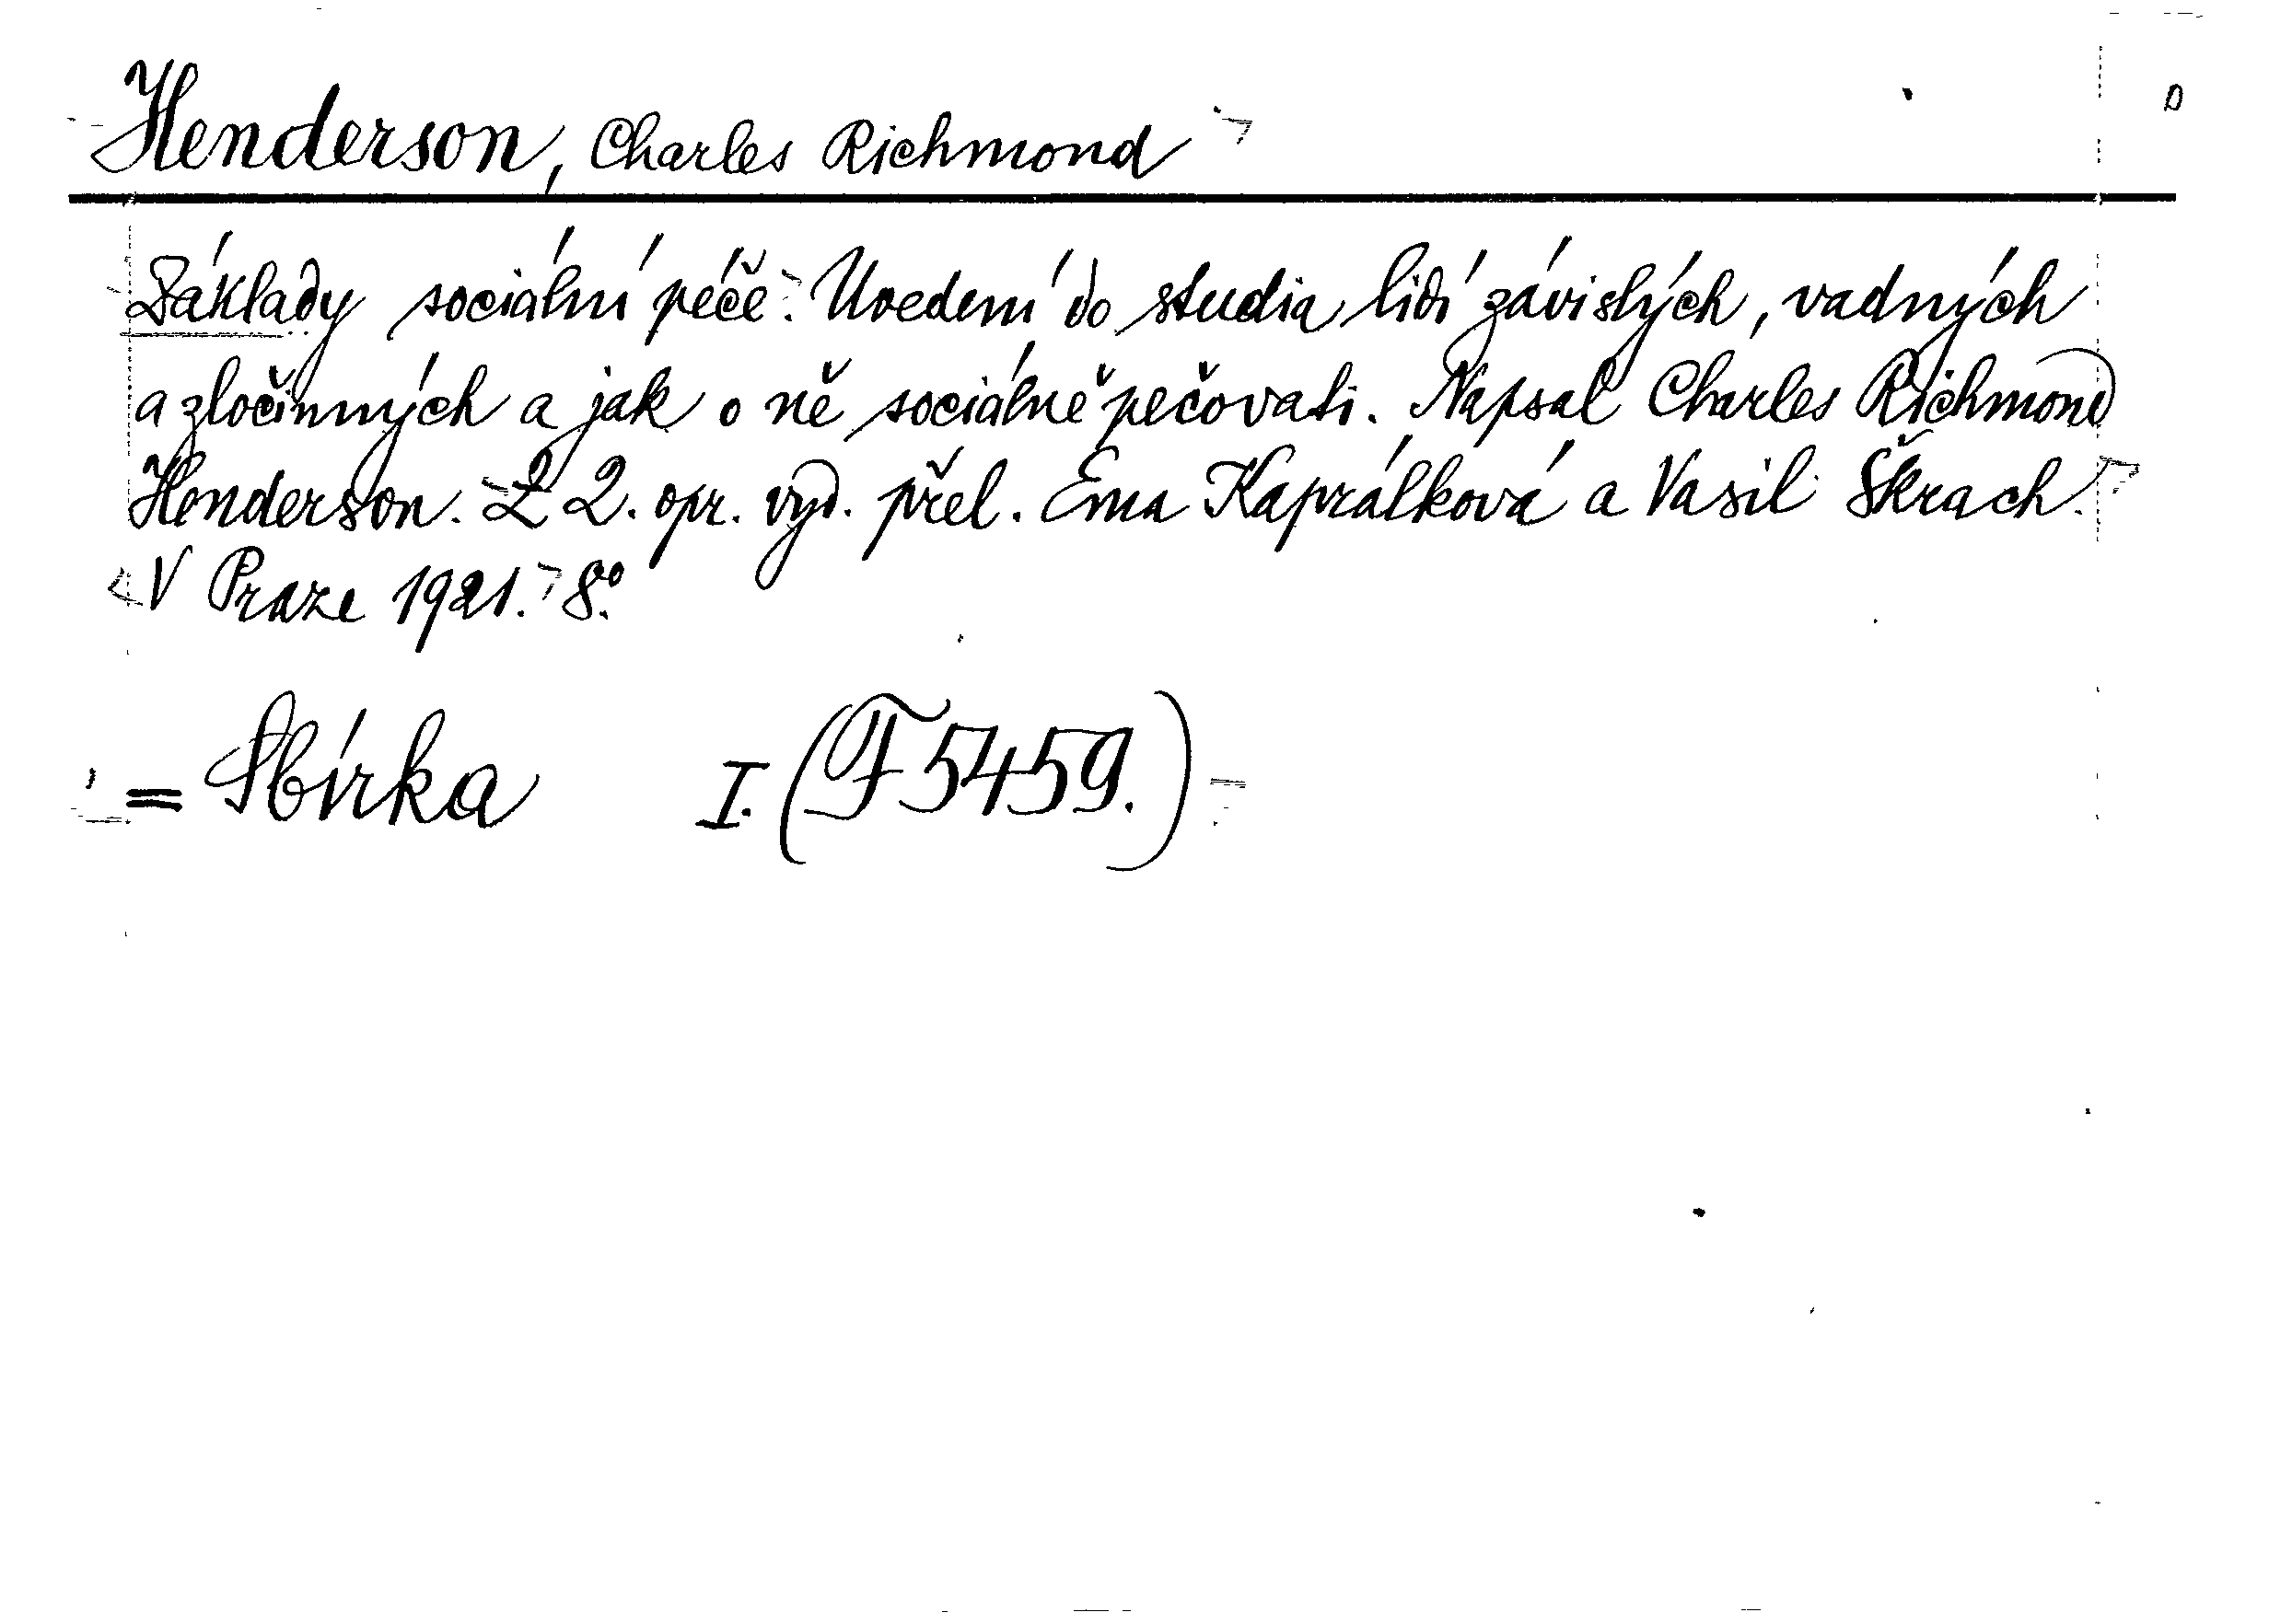 Henderson, Charles Richmond
Základy sociální péče. Uvedení do studia lidí závislých, vadných
a zločinných a jak o ně sociálně pečovati. Napsal Charles Richmond
Henderson. Z 2. opr. vyd. přel. Ema Kaprálková a Vasil Škrach.
V Praze 1921. 8°.
= Sbírka I. (F 5459.)